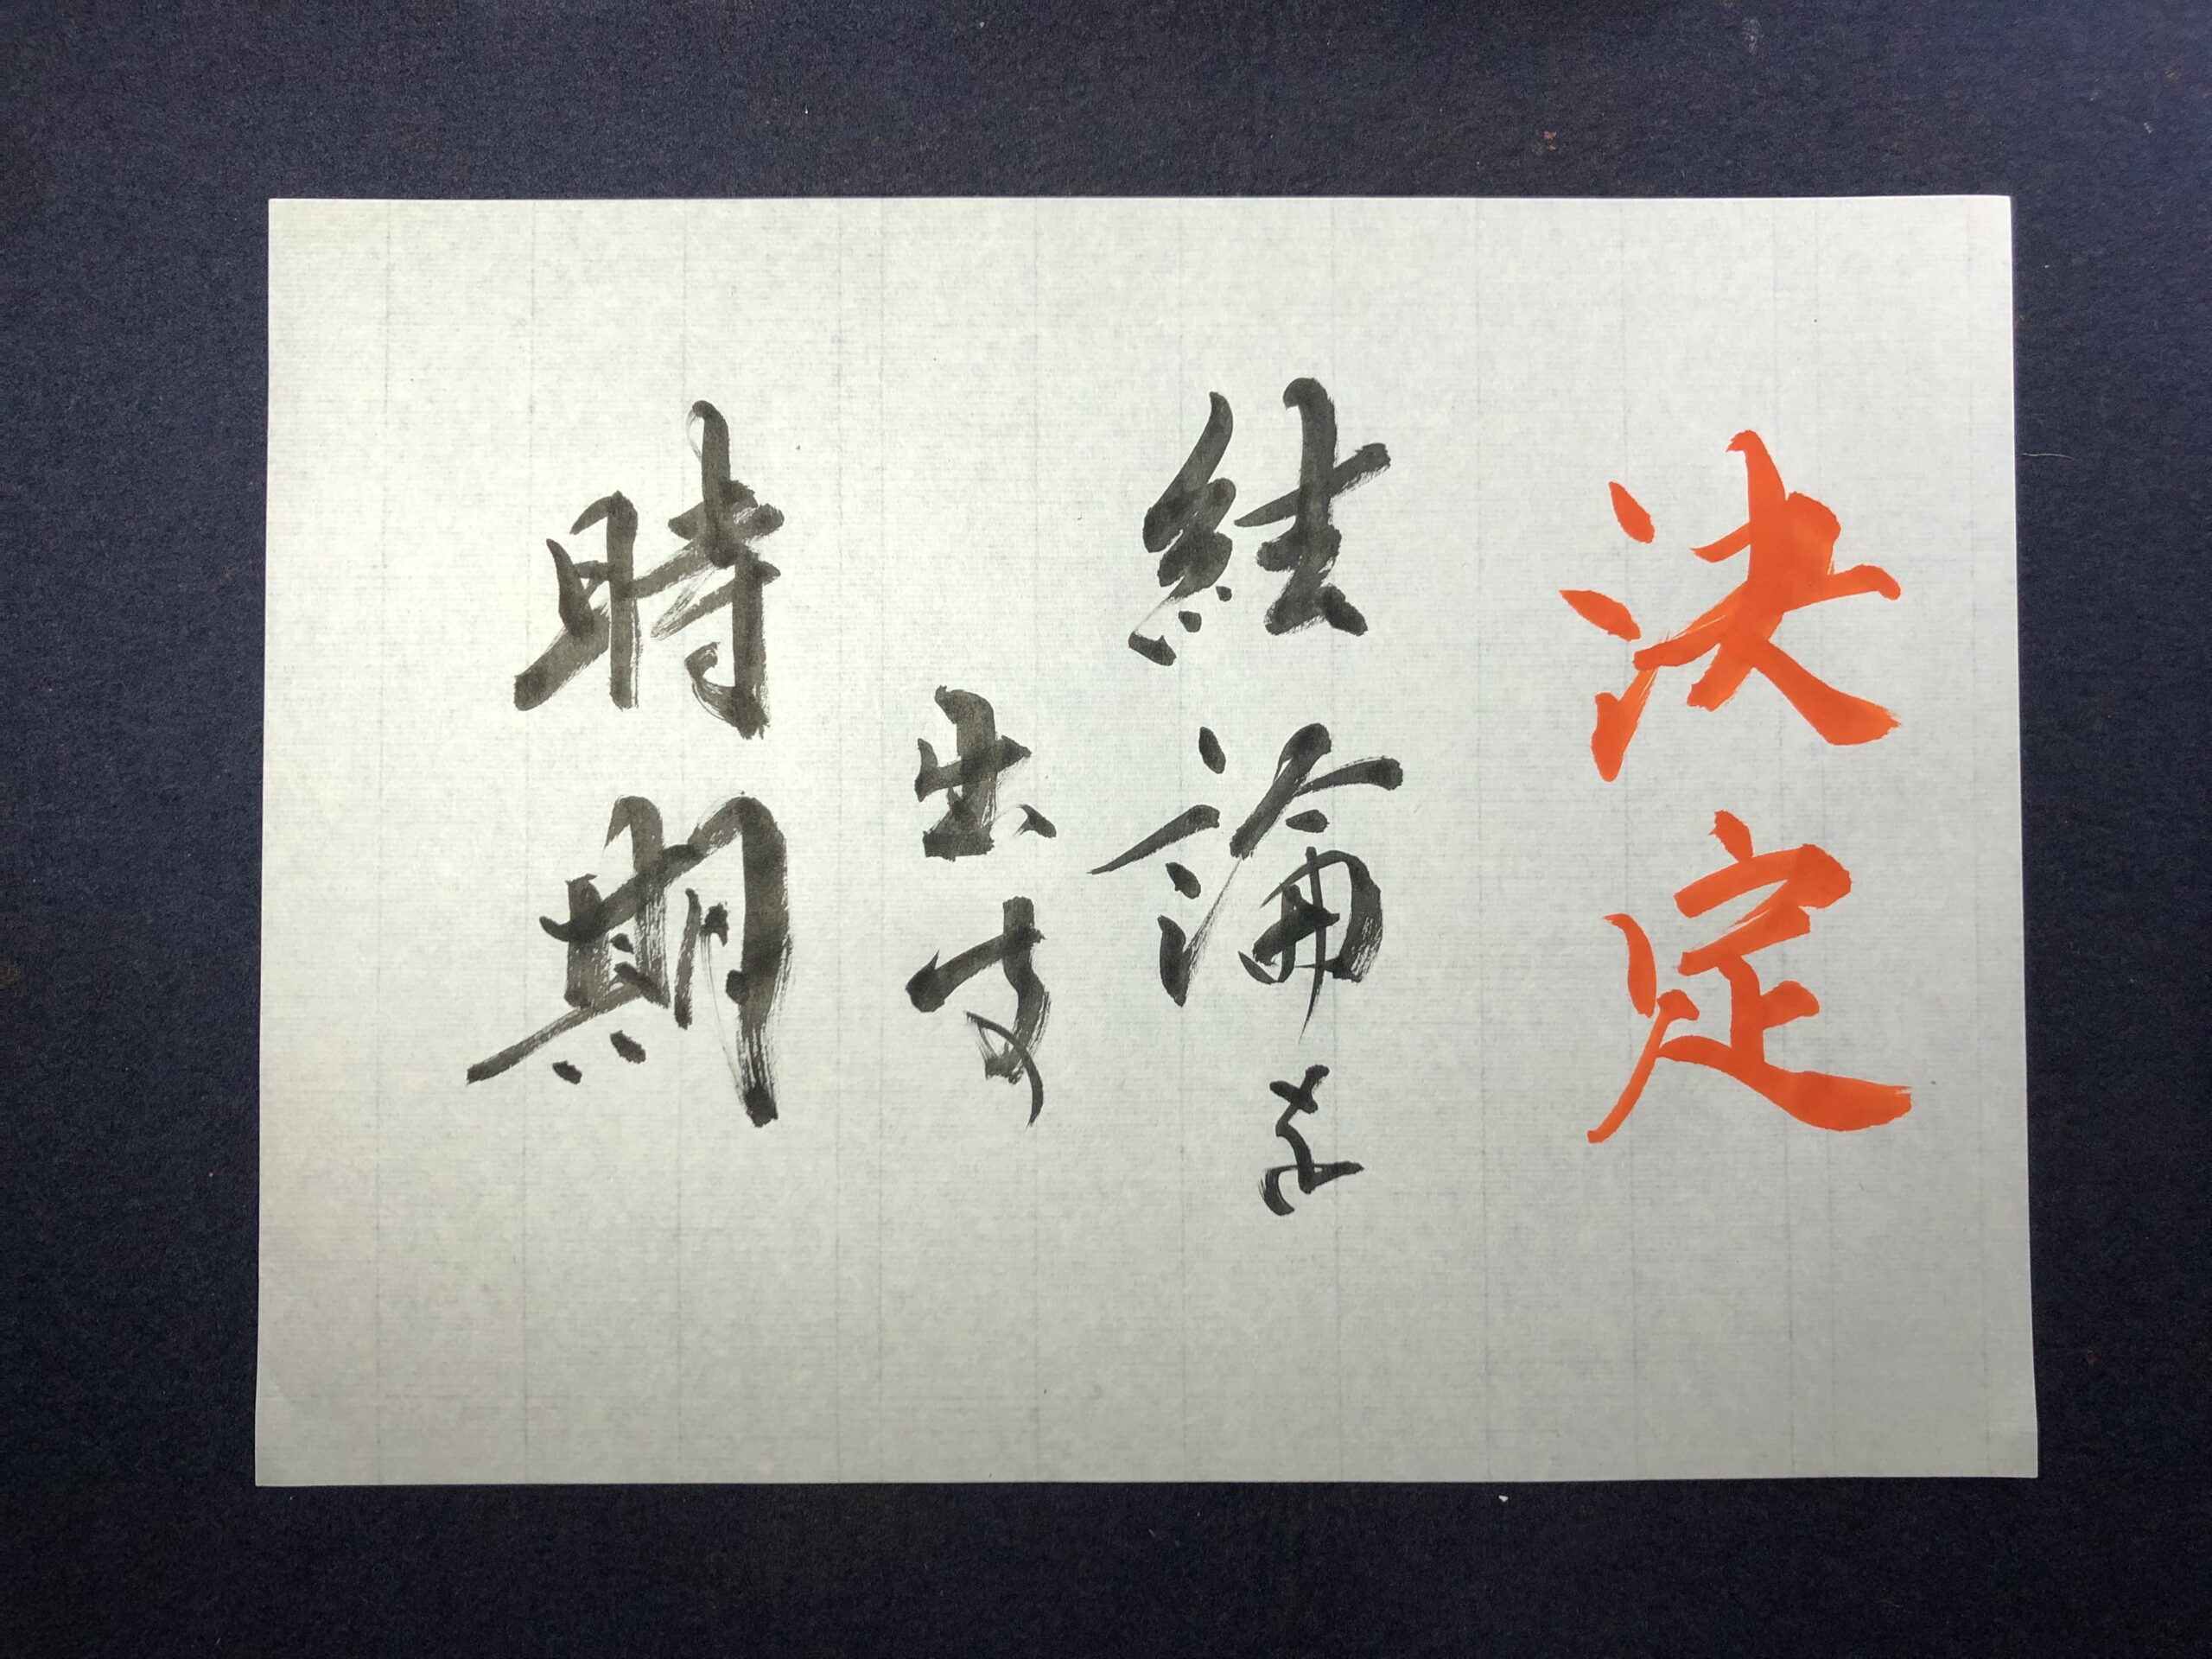 決定
結論を
出す
時期